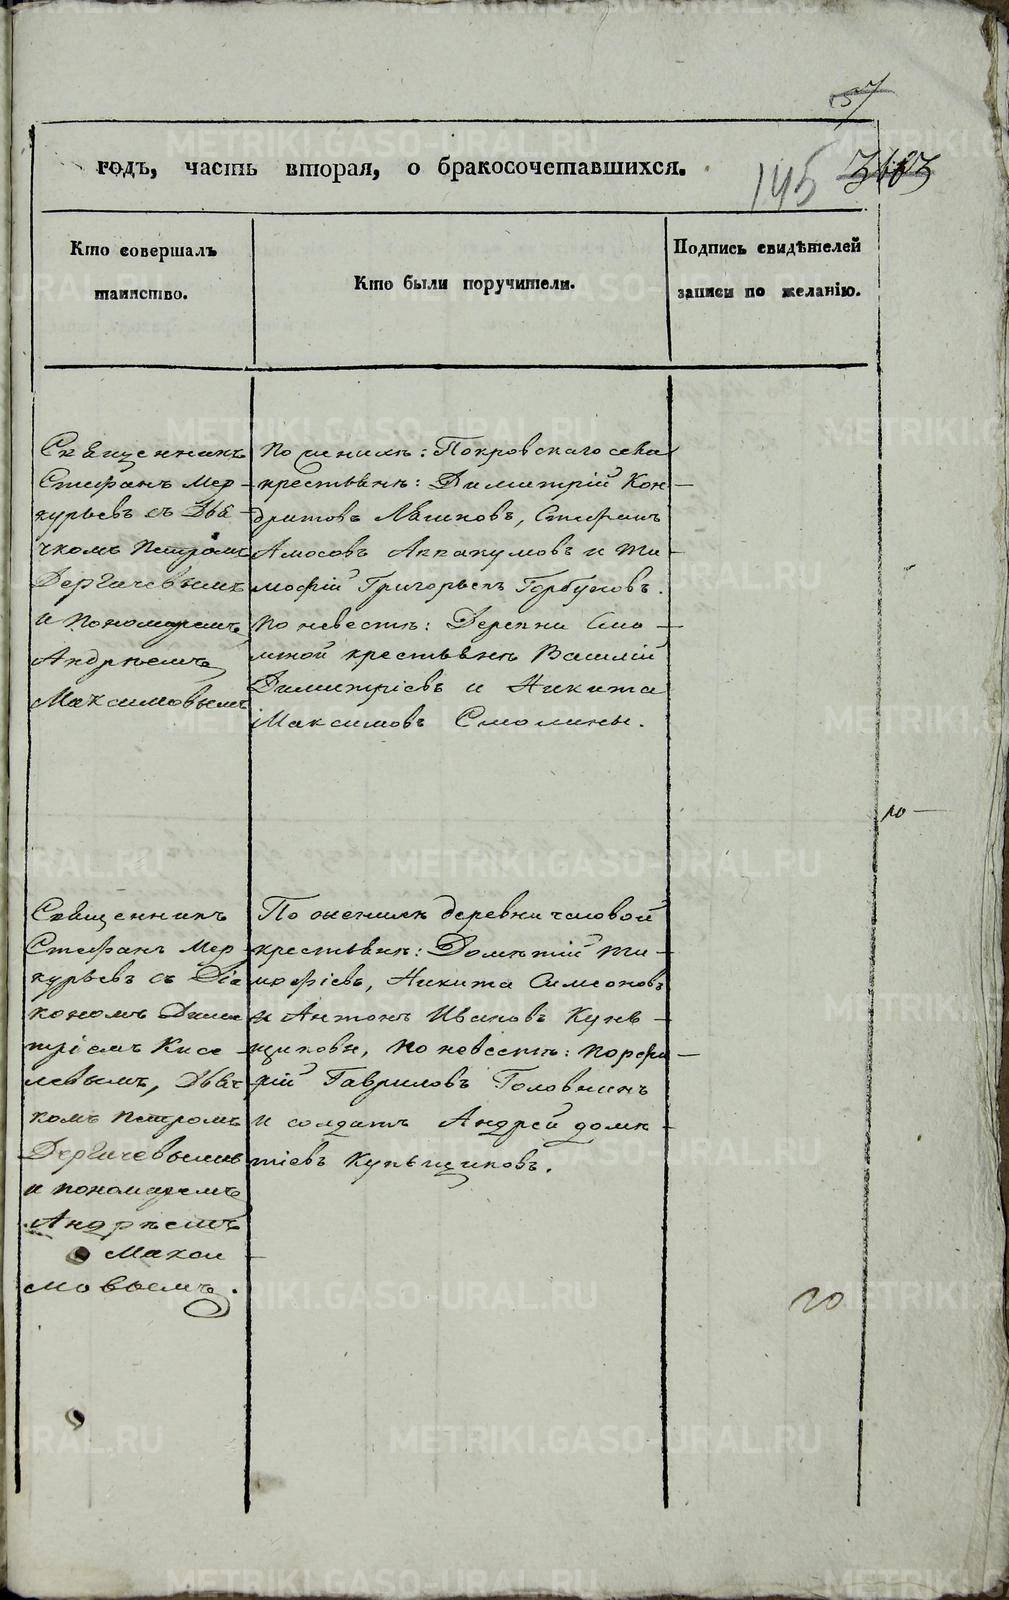 57
годъ, часть вторая, о бракосочетавшихся.
145
Кто совершалъ
таинство.
Кто были поручители.
Подпись свидѣтелей
записи по желанію.
Священникъ
Стефанъ Мер-
курьевъ съ Дья-
чкомъ Петромъ
Дергачевымъ
и Пономаремъ
Андрѣемъ
Максимовымъ
По женихѣ: Покровскаго села
крестьяне: Димитрій Кон-
дратовъ Стефанъ
Амосовъ Аввакумовъ и Ти-
мофій Григорьевъ Горбуновъ.
по невестѣ: Деревни Смо-
крестьяне Василій
Димитріевъ и Никита
Максимовъ Смолины.
10
Священникъ
Стефанъ Мер-
курьевъ съ Діа
кономъ Дими
тріемъ Кисе-
левымъ, Дьяч
комъ Петромъ
Дергачевымъ
и пономаремъ
Андрѣемъ
Макси-
мовымъ.
По женихѣ деревни
крестьяне: Дометій Ти-
мофіевъ, Никита Симеоновъ
и Антонъ Ивановъ Куне-
щиковы, по невестѣ: Порфи-
рій Гавриловъ Головнинъ
и солдатъ Андрей доме-
тіевъ Кунещиковъ.
20
METRIKI.GASO-URAL.RU